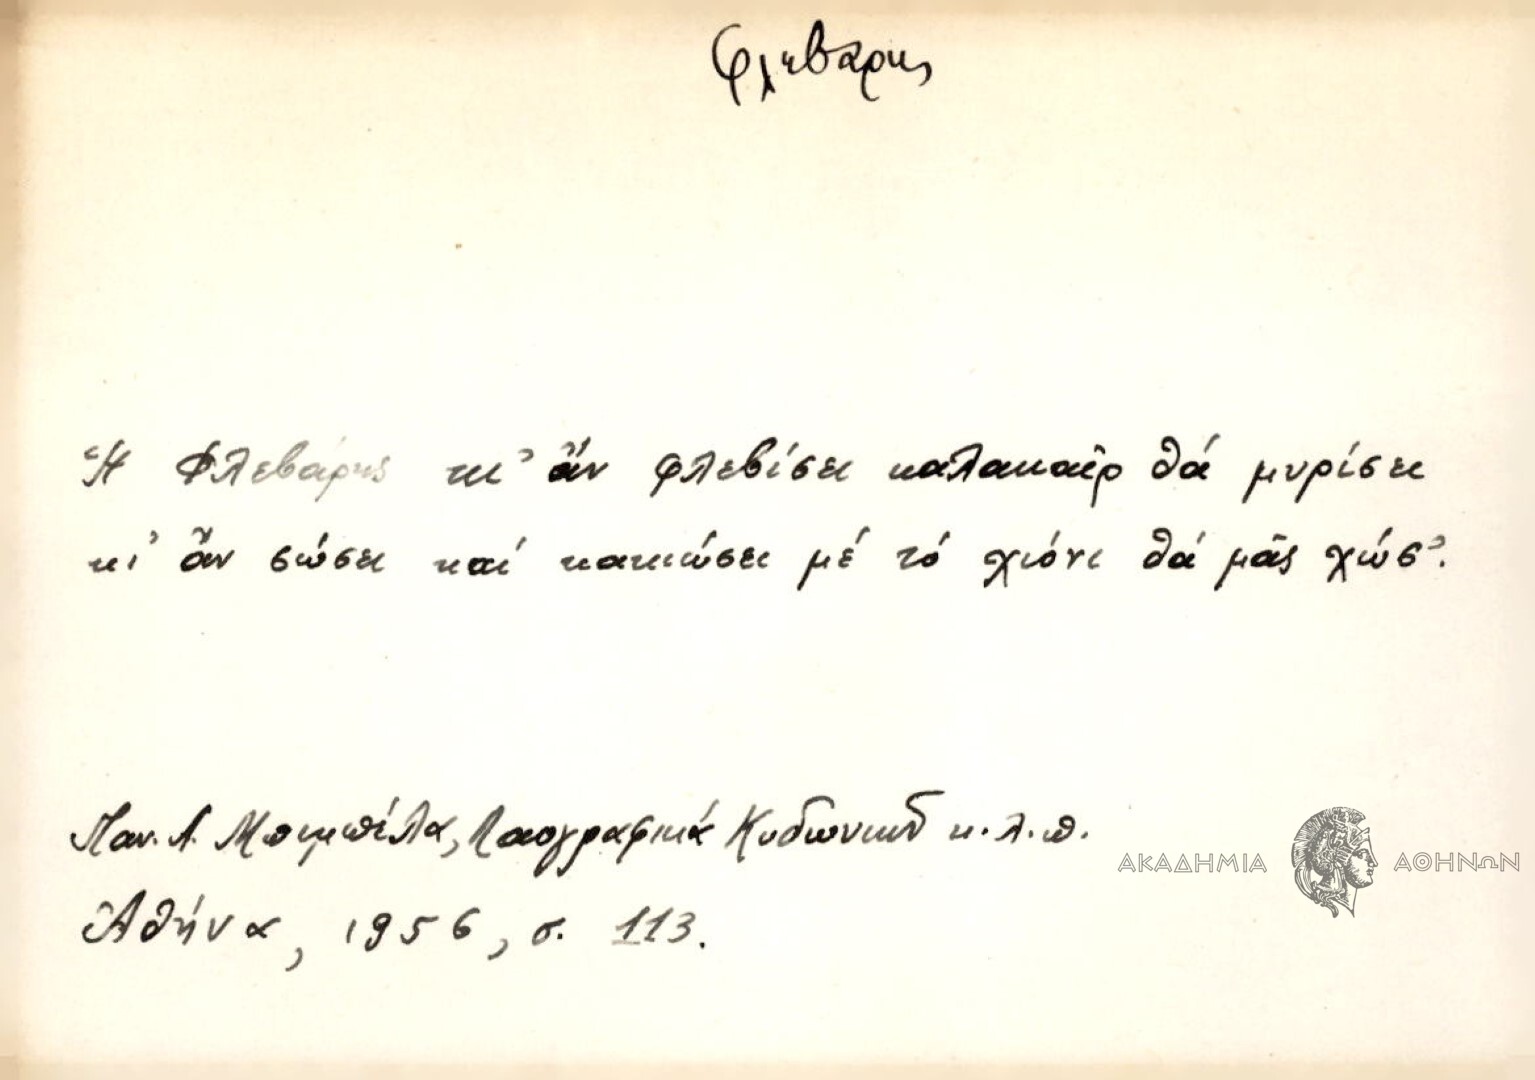 Φλεβάρης
Ἡ Φλεβάρης κι' ἄν φλεβίσει καλακαῖρ θά μυρίσει
κι' ἄν σώσει καί κακιώσει μέ τό χιόνι θά μᾶς χώσ'.
Παν. Λ. Μπιμπέλα, Λαογραφικά Κυδωνιῶν κ.λ.π.
ΑΚΑΔΗΜΙΑ ΑΘΗΝΩΝ
Ἀθήνα, 1956, σ. 113.